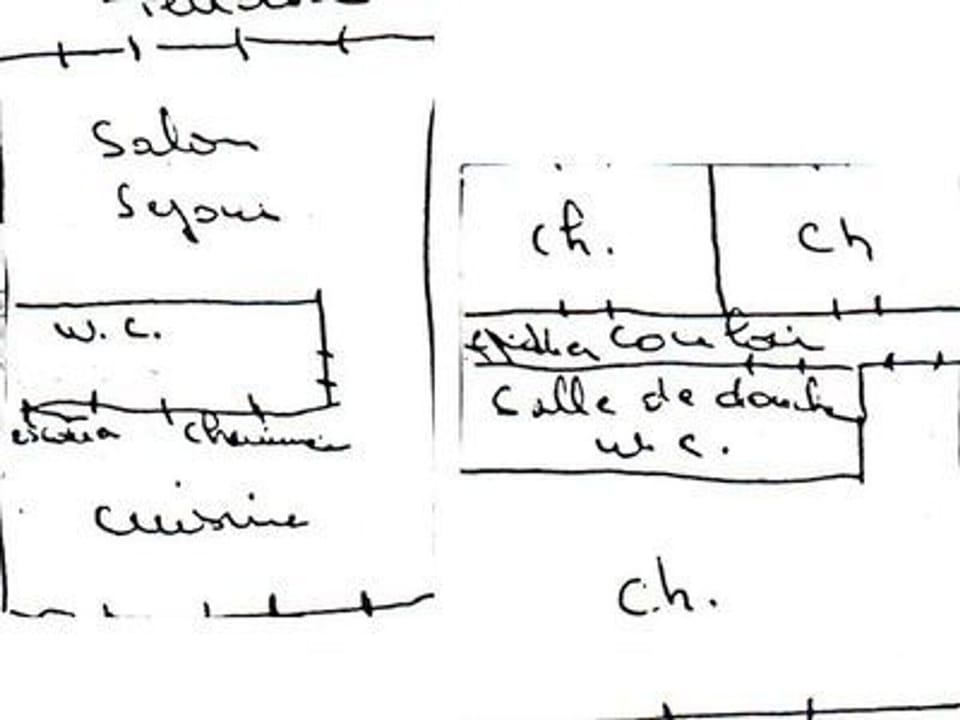 Salon
Sejour
w.c.
cheminée
cuisine
ch.
ch
couloir
Salle de douche
w c.
ch.